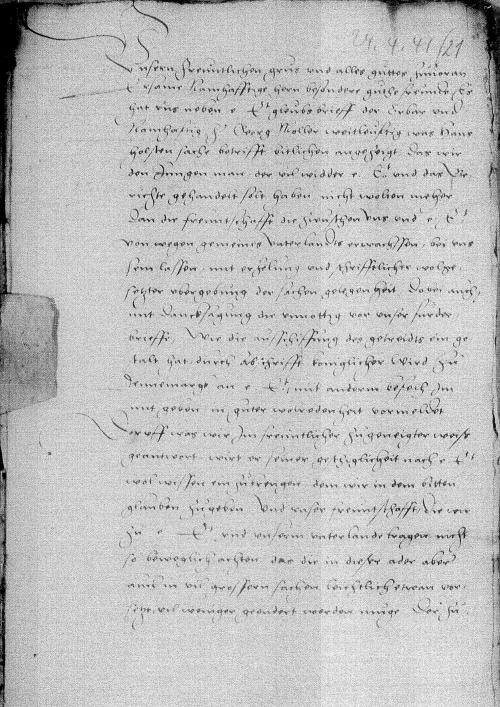 24. 4. 41/21
Unsern freuntlichen grus und alles guttes zuuoran
Ersame Namhafftige hern besondere guthe freunde Es
hat uns neben e. Et glaubsbrieff der Erbar und
Namhaftig h. Georg Moller weitleuftig was Hans
holsten sache betrifft bitlichen angezeigt das wir
den Jungen man der vil widder e. Et und das Ge
richte gehandelt solt haben nicht wolten mehr
dan die freuntschafft die zwuschen uns und e. Et
von wegen gemeines vaterlandts erwachssen, bei uns
sein lassen, mit erholung und schrifftlicher
setzter ubergebung der sachen gelegenheit Do bei auch
mit dancksagung die vor unser furder
brieffe, Wie die ausschiffung des getreidts ein ge
stalt hat durch abschrifft koniglicher wird zu
Dennemargk an e. Et mit anderm befelh Im
mit geben in guter wolredenheit vormeldet
Doruff was wir Im freuntlicher zugeneigter weise
geantwort wirt er seiner geschiglicheit nach e. Et
wol wissen ein zubrengen dem wir in dem bitten
glauben zugeben Und unser freuntschafft, die wir
zu e. Et und unserm vaterlande tragen nicht
so beweglich achten das die in dieser ader aber
auch in vil grossern sachen leichtlich etwan vor
setzt vil weniger geendert werden muge Der zu